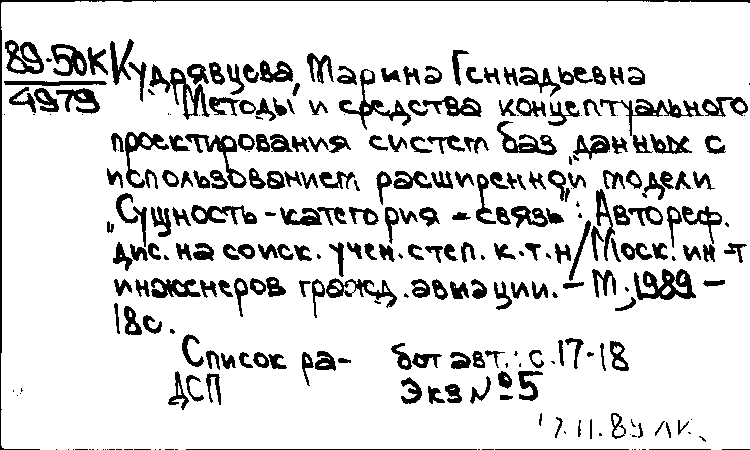 89-50К Кудрявцева, Марина Геннадьевна
4979
Методы и средства концептуального
проектирования систем баз данных с
использованием расширенной модели
„Сущность-категория-связь": Автореф.
дис. на соиск. учен. степ. к.т.н/Моск. ин-т
инженеров гражд. авиации. - М., 1989 -
18с.
Список ра- бот авт.: с. 17-18
ДСП Экз №5
17.11.89 ЛК.